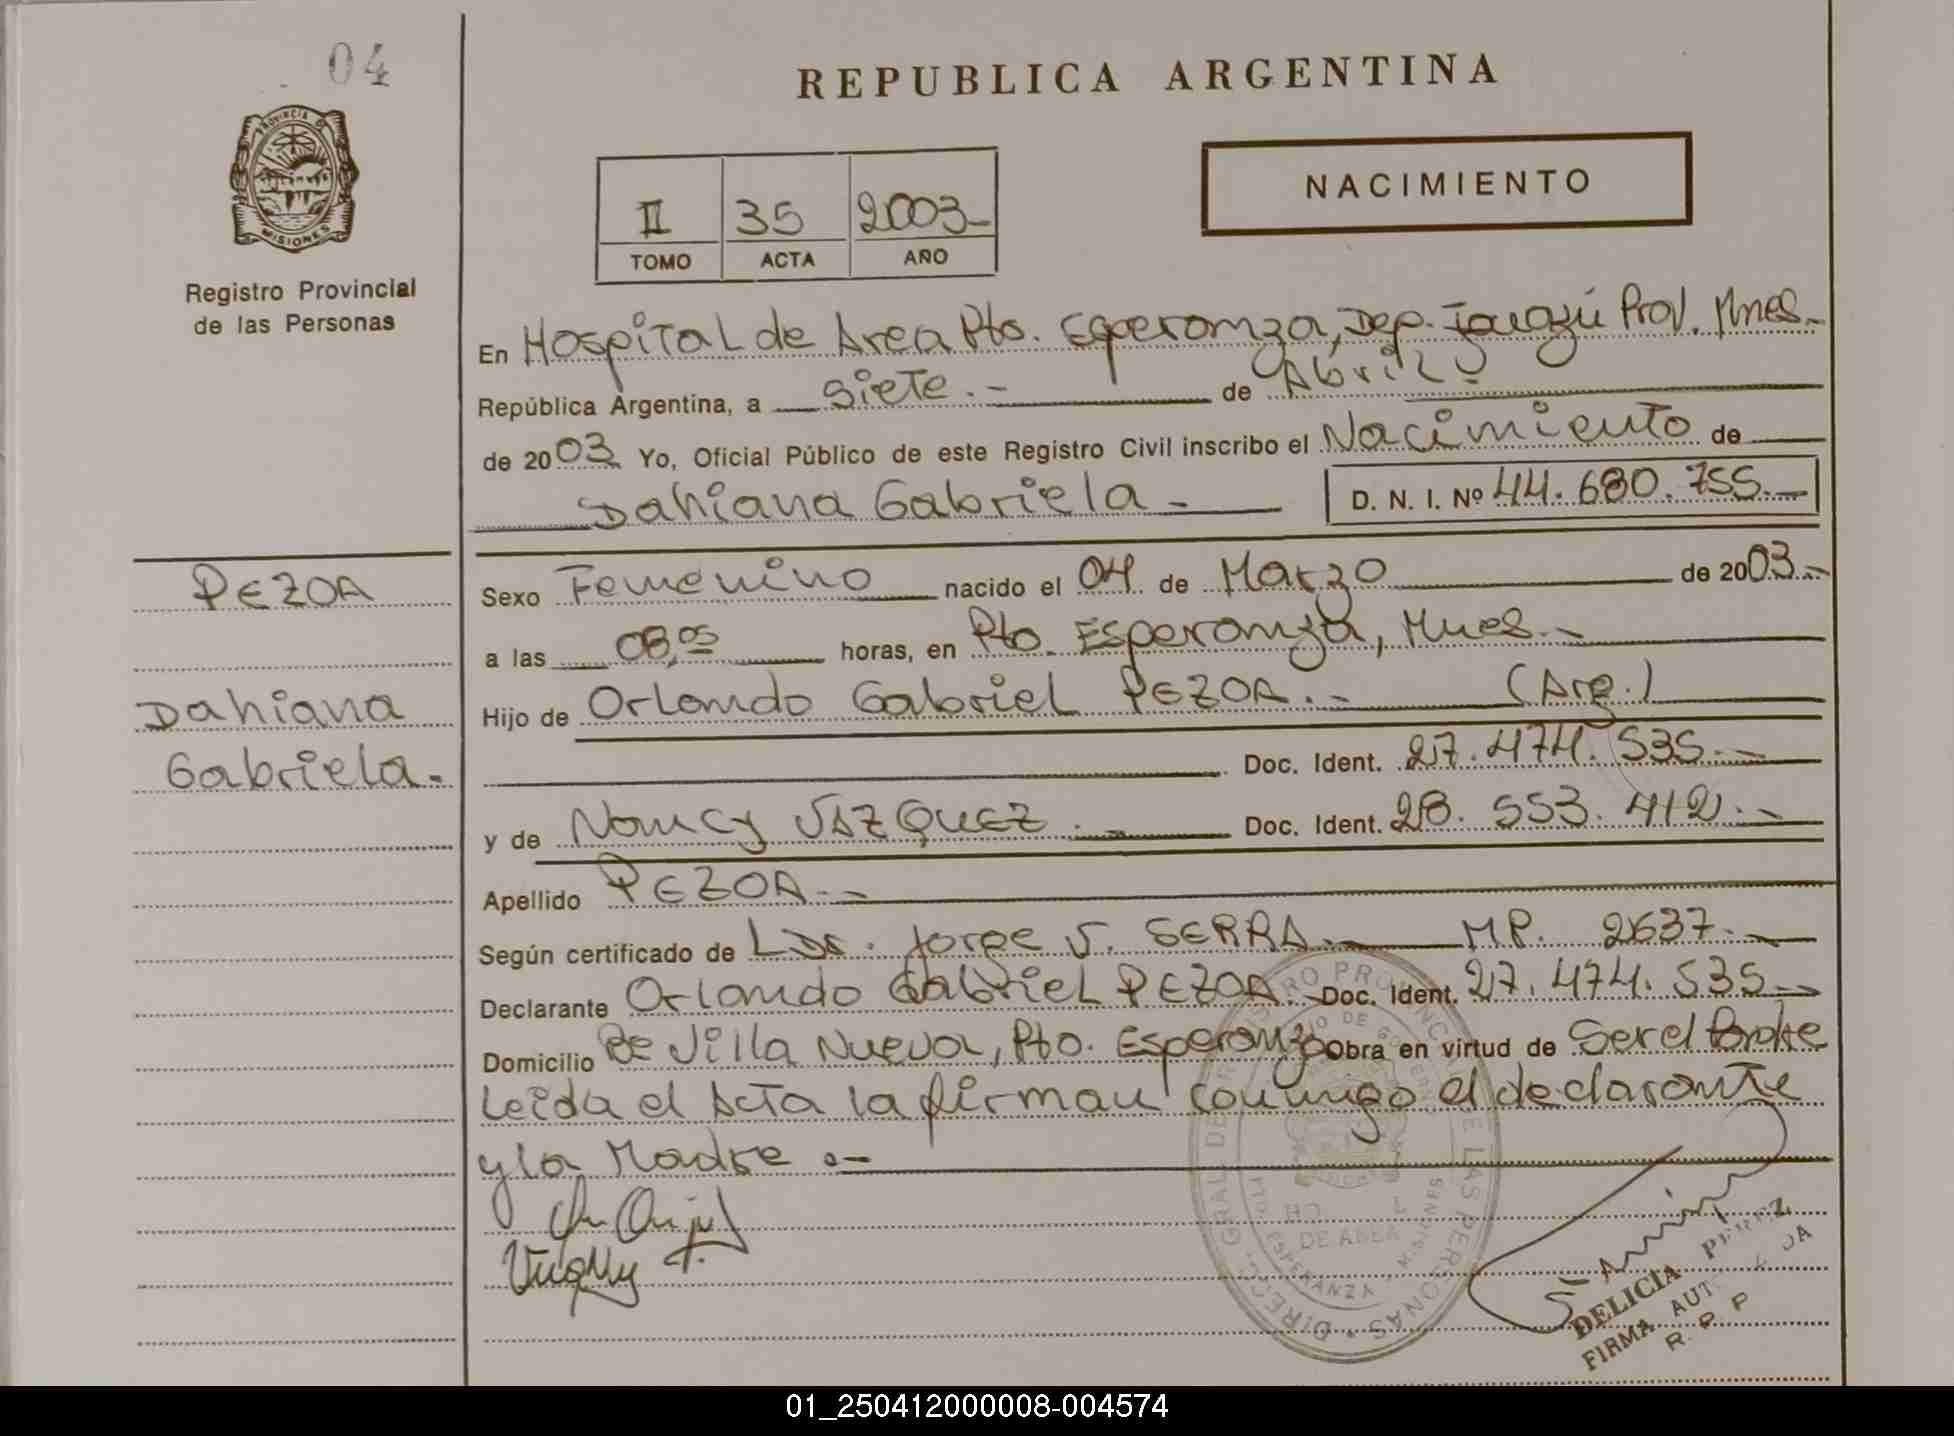 04
PROVINCIA DE
MISIONES
Registro Provincial
de las Personas
REPUBLICA ARGENTINA
NACIMIENTO
II 35 2003-
TOMO ACTA AÑO
En Hospital de Area Pto. Esperanza, Dep. Iguazú Prov. Mnes.-
República Argentina, a siete.- de Abril.-
de 2003 Yo, Oficial Público de este Registro Civil inscribo el Nacimiento de
Dahiana Gabriela - D. N. I. Nº 44.680.755.-
PEZOA
Dahiana
Gabriela.-
Sexo Femenino nacido el 04 de Marzo de 2003.-
a las 08,05 horas, en Pto. Esperanza, Mnes.-
Hijo de Orlando Gabriel PEZOA.- (Arg.)
Doc. Ident. 27.474.535.-
y de Nancy VAZQUEZ.- Doc. Ident. 28.553.412.-
Apellido PEZOA.-
Según certificado de Jorge SERRA.- MP. 2637.-
Declarante Orlando Gabriel PEZOA.- Doc. Ident. 27.474.535.-
Domicilio Bº Villa Nueva, Pto. Esperanza Obra en virtud de Ser el Padre
Leida el Acta la firman conmigo el declarante
y la Madre.-
DIREC. GRAL. DE REGISTRO PROVINCIAL DE LAS PERSONAS
DE AREA
MISIONES
DELICIA PEREZ
FIRMA AUTORIZADA
R. P. P
01_250412000008-004574